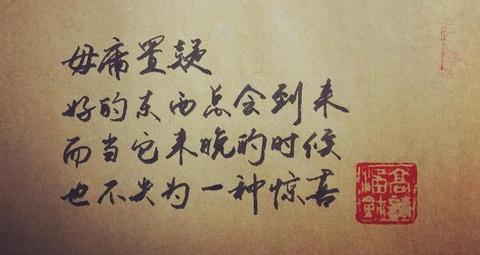 毋庸置疑
好的东西总会到来
而当它来晚的时候
也不失为一种惊喜